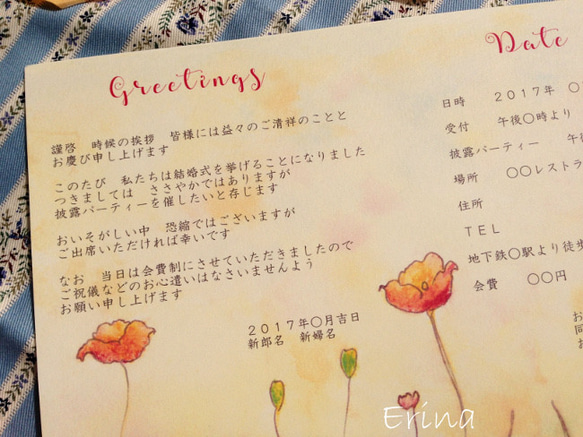 Greetings
謹啓　時候の挨拶　皆様には益々のご清祥のことと
お慶び申し上げます
このたび　私たちは結婚式を挙げることになりました
つきましては　ささやかではありますが
披露パーティーを催したいと存じます
おいそがしい中　恐縮ではございますが
ご出席いただければ幸いです
なお　当日は会費制にさせていただきましたので
ご祝儀などのお心遣いはなさいませんよう
お願い申し上げます
２０１７年〇月吉日
新郎名　新婦名
Date
日時　２０１７年　〇
受付　午後〇時より
披露パーティー　午
場所　〇〇レストラ
住所
ＴＥＬ
地下鉄〇駅より徒歩
会費　〇〇円
Erina